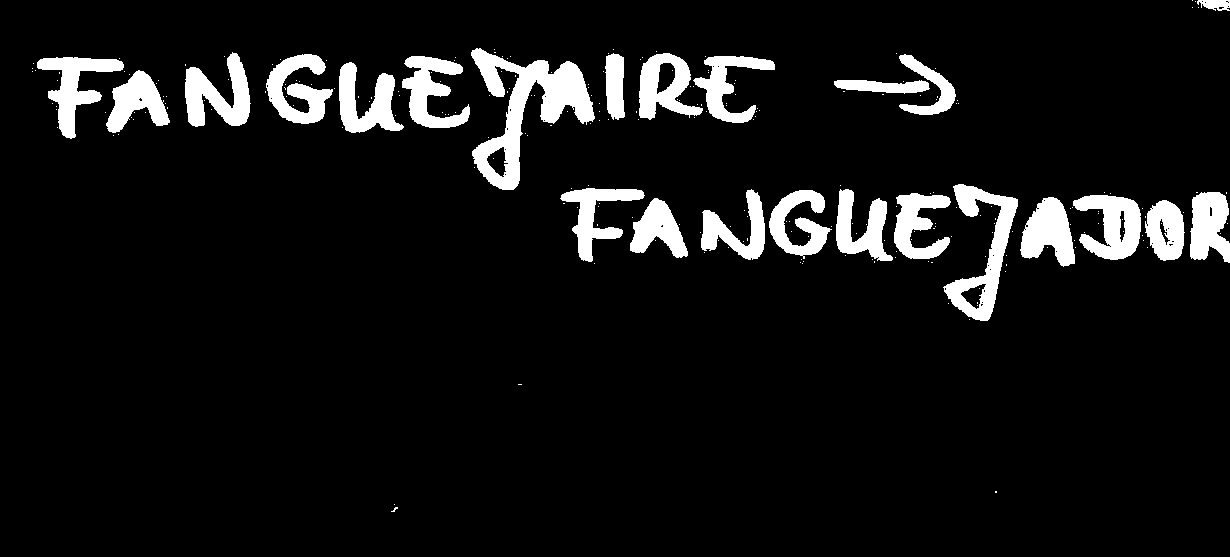 FANGUEJAIRE →
FANGUEJADOR